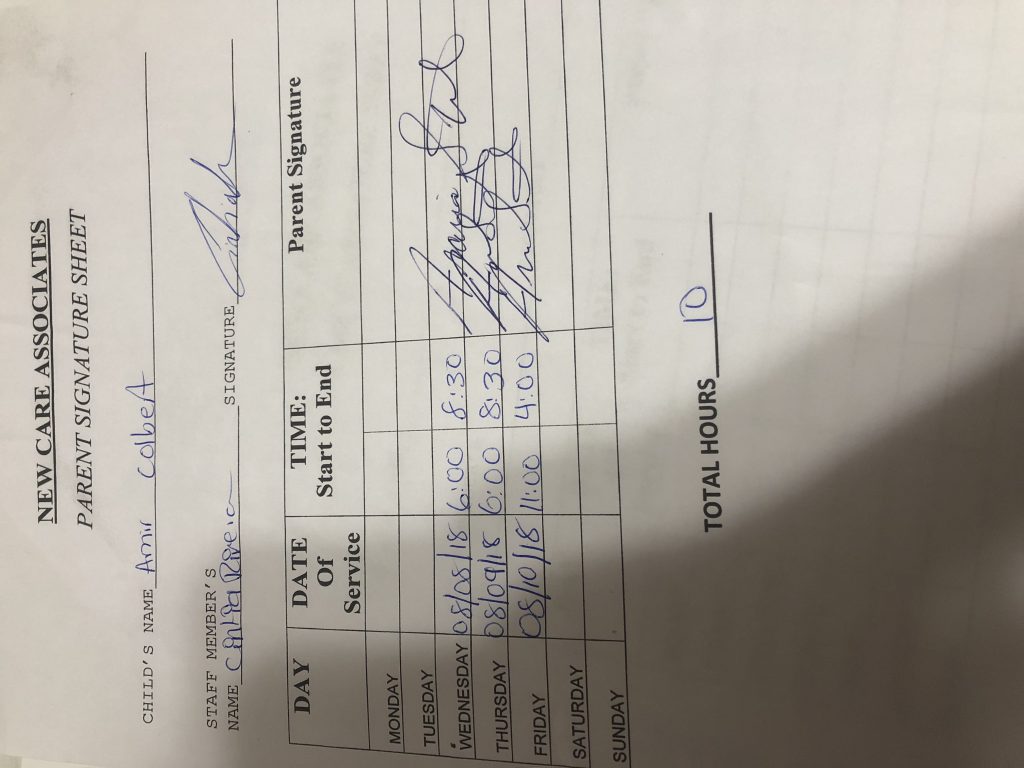 NEW CARE ASSOCIATES
PARENT SIGNATURE SHEET
CHILD'S NAME Amir Colbert
STAFF MEMBER'S
NAME SIGNATURE
DAY DATE Of Service TIME: Start to End Parent Signature
MONDAY
TUESDAY
WEDNESDAY 08/08/18 6:00 8:30
THURSDAY 08/09/18 6:00 8:30
FRIDAY 08/10/18 11:00 4:00
SATURDAY
SUNDAY
TOTAL HOURS 10